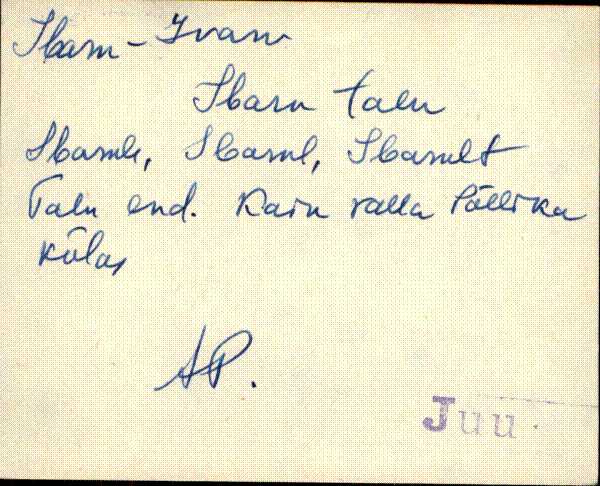 Ibaru - Ivaru
Ibaru talu
Ibarule, Ibarul, Ibarult
Talu end. Kaiu valla Põllika
külas
AP.
Juu